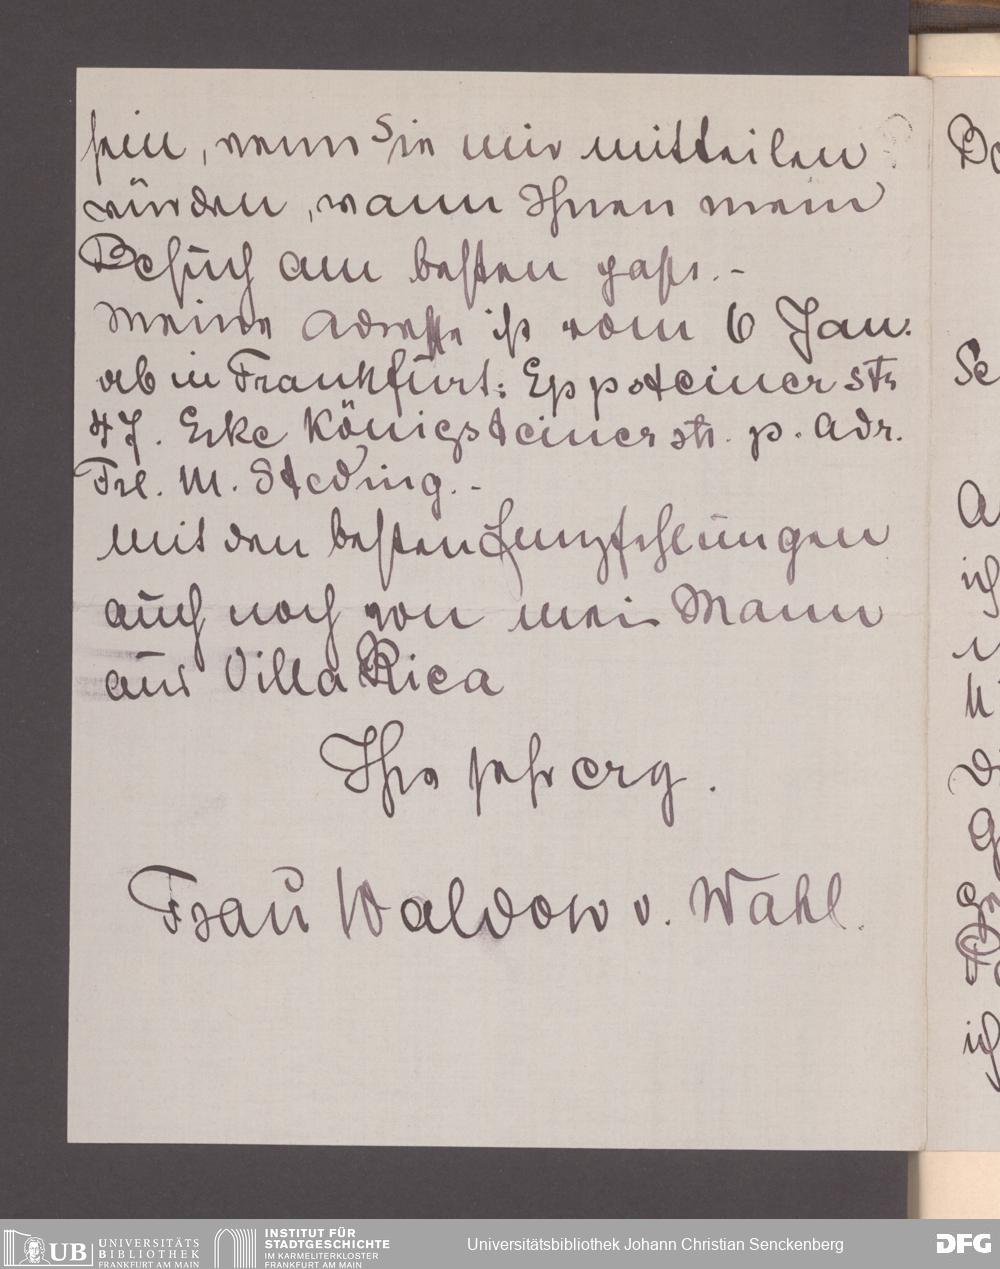 sein, wenn Sie mir mitteilen
würden, wann Ihnen mein
Besuch am besten passt.-
Meine Adresse ist vom 6 Jan.
ab in Frankfurt: Eppsteinerstr
47. Ecke Königsteinerstr. p. Adr.
Frl. M. Steding.-
Mit den besten Empfehlungen
auch noch von mei Mann
aus Villa Rica
Ihre sehr erg.
Frau Waldow v. Wahl.
Se
ich
ich
UB UNIVERSITÄTS
BIBLIOTHEK
FRANKFURT AM MAIN
INSTITUT FÜR
STADTGESCHICHTE
IM KARMELITERKLOSTER
FRANKFURT AM MAIN
Universitätsbibliothek Johann Christian Senckenberg
DFG